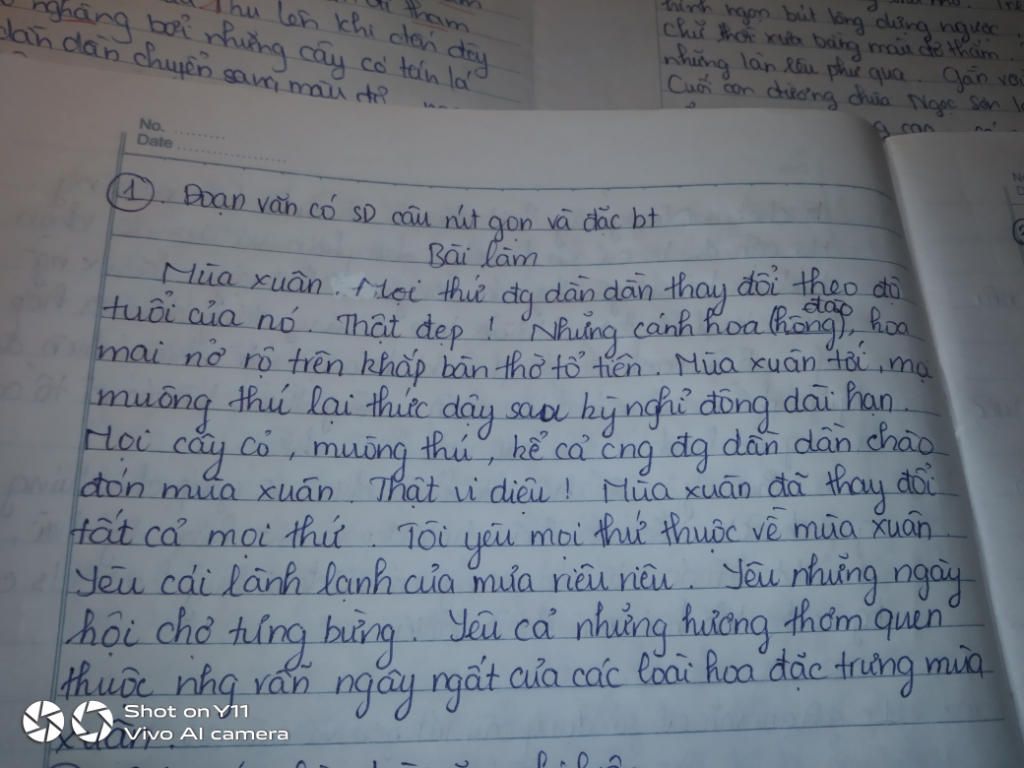 nghãng bởi những cây cơ tán lá
dần dần chuyển sang màu đỏ
chữ thời xưa bằng màu đỏ thẫm
Cuối con đường chùa Ngọc Sơn
No.
Date
① . Đoạn văn có SD câu rút gọn và đặc bt
Bài làm
Mùa xuân. Mọi thứ đg dần dần thay đổi theo độ
tuổi của nó. Thật đẹp ! Những cánh hoa (hồng) đào, hoa
mai nở rộ trên khắp bàn thờ tổ tiên. Mùa xuân tới, mạ
muông thú lại thức dậy sau kỳ nghỉ đông dài hạn.
Mọi cây cỏ, muông thú, kể cả cng đg dần dần chào
đón mùa xuân. Thật vi diệu ! Mùa xuân đã thay đổi
tất cả mọi thứ. Tôi yêu mọi thứ thuộc về mùa xuân.
Yêu cái lành lạnh của mưa riêu riêu. Yêu những ngày
hội chợ tưng bừng. Yêu cả những hương thơm quen
thuộc nhg vẫn ngây ngất của các loài hoa đặc trưng mùa
xuân.
Shot on Y11
Vivo AI camera